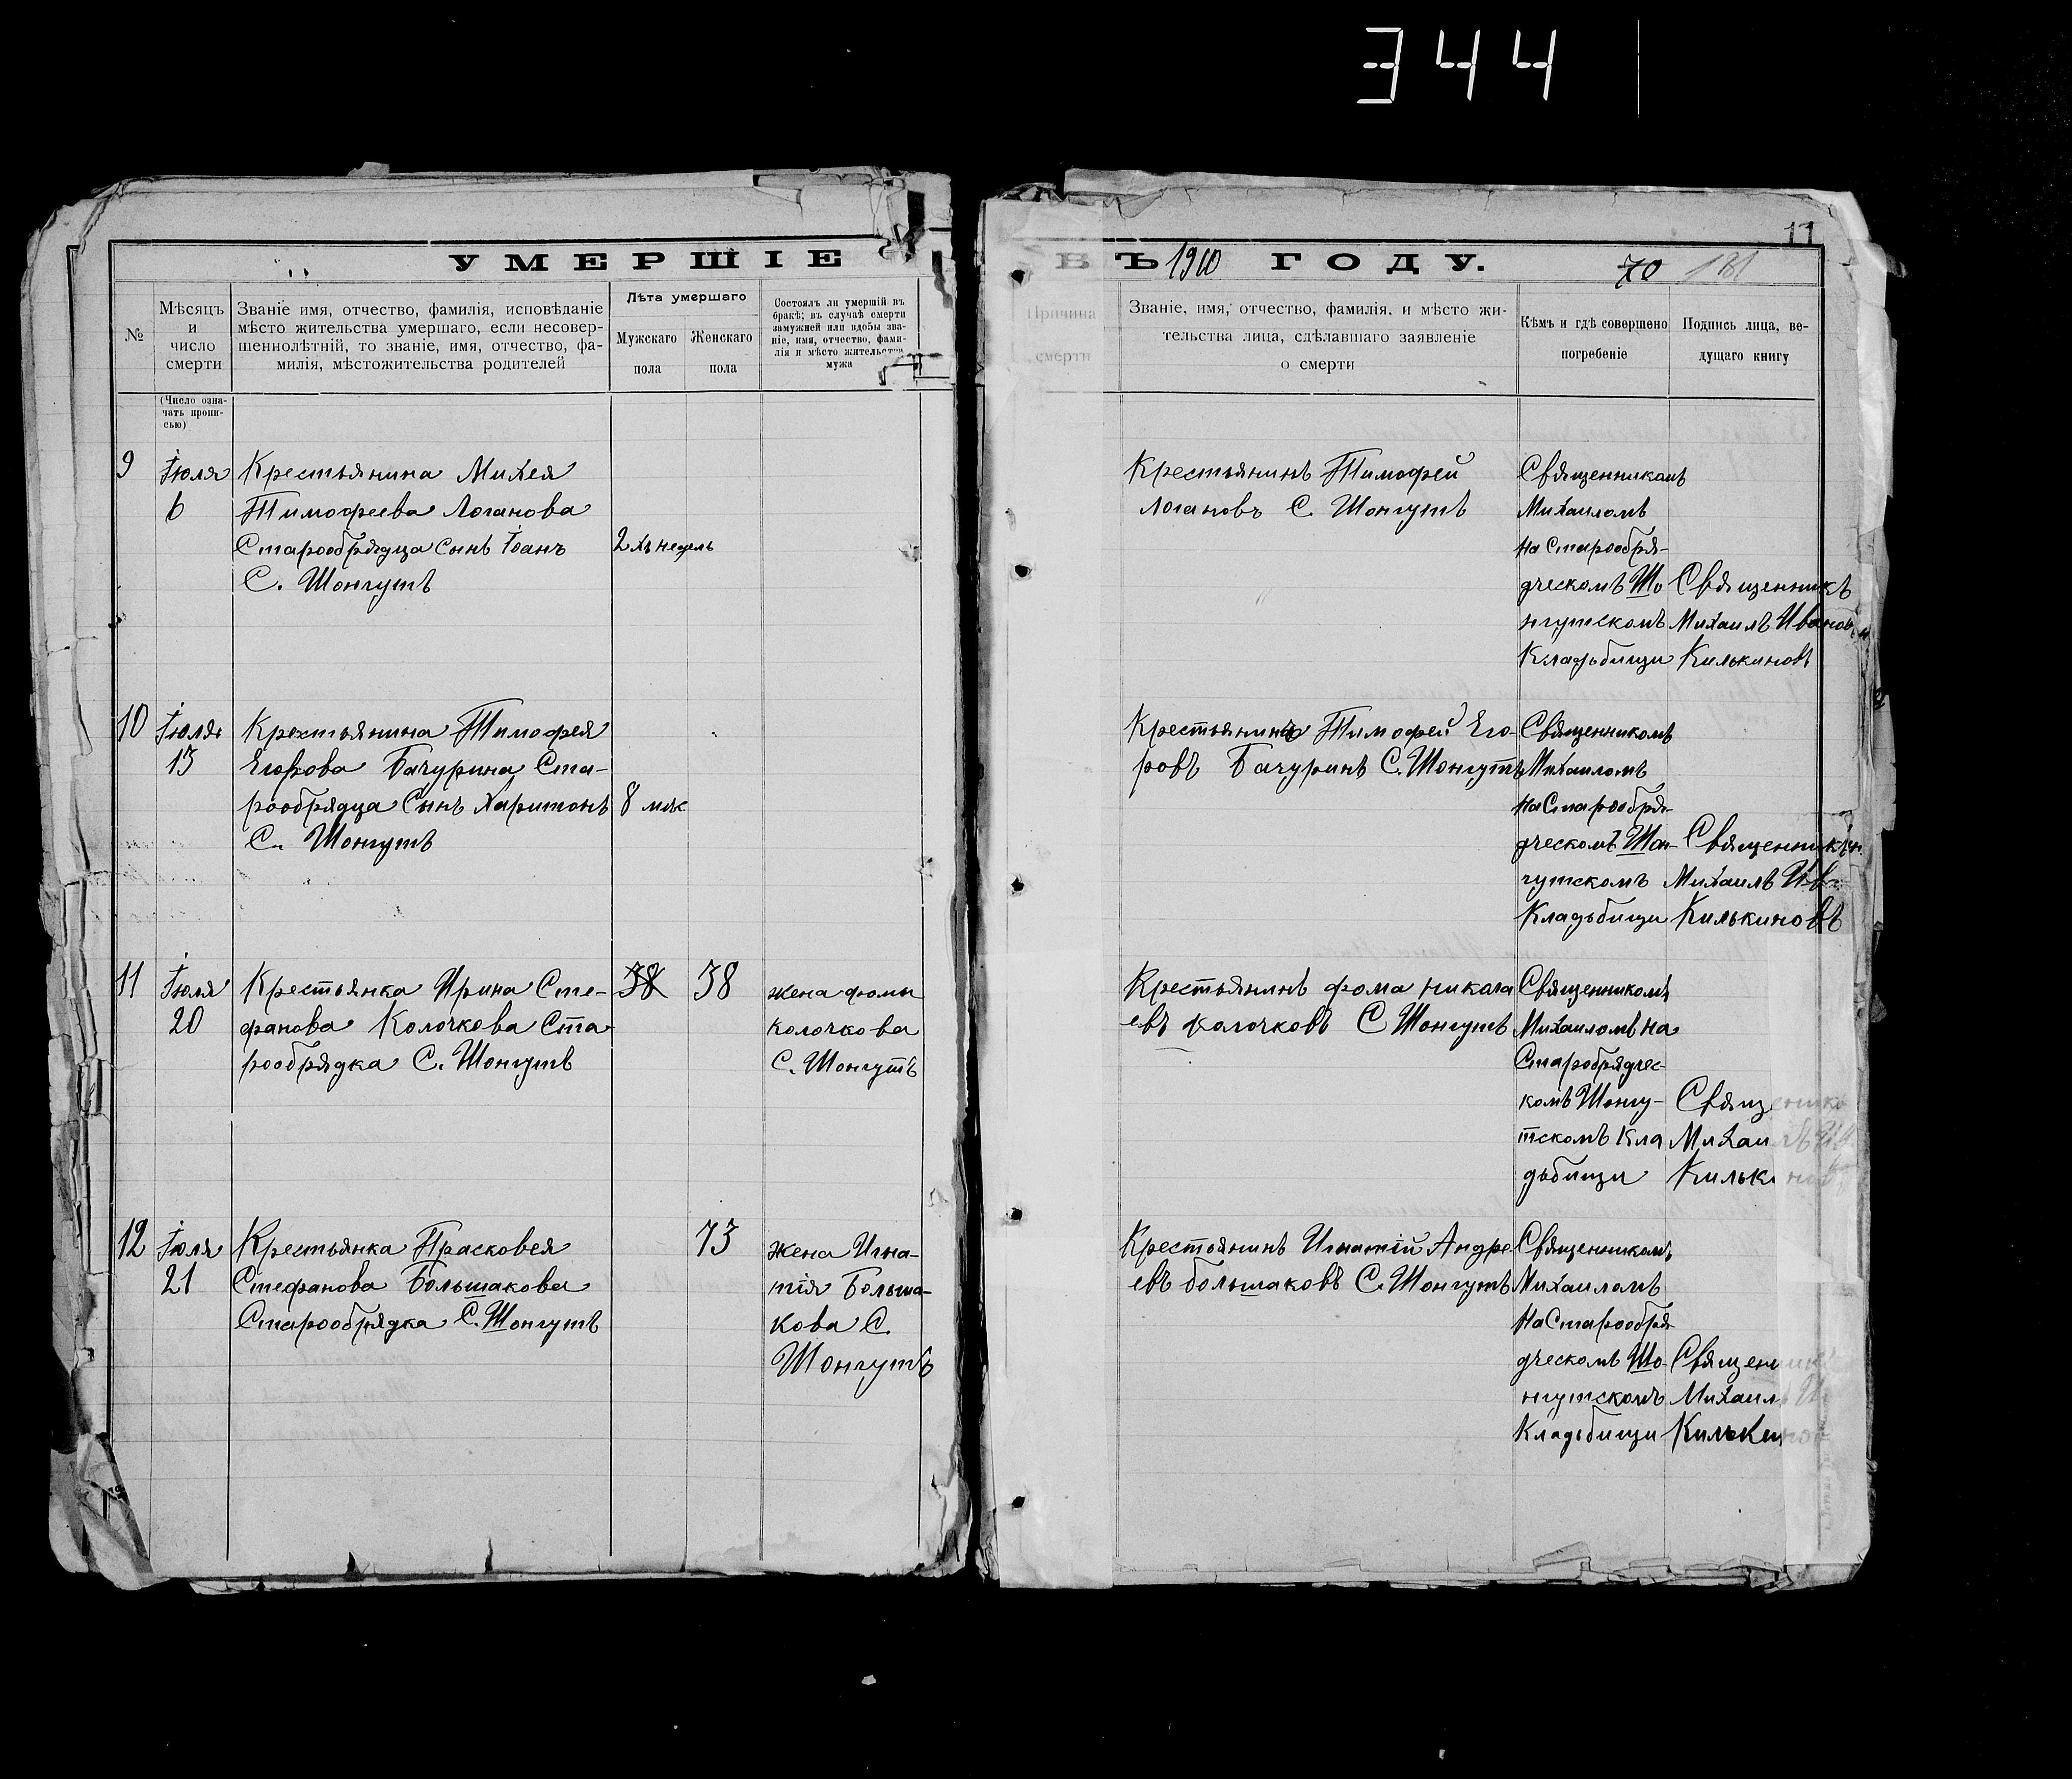 344
11
УМЕРШІЕ
ВЪ 1910 ГОДУ.
70 181
№
Мѣсяцъ
и
число
смерти
Званіе имя, отчество, фамилія, исповѣданіе
мѣсто жительства умершаго, если несовер-
шеннолѣтній, то званіе, имя, отчество, фа-
милія, мѣстожительства родителей
Лѣта умершаго
Мужскаго
пола
Женскаго
пола
Состоялъ ли умершій въ
бракѣ; въ случаѣ смерти
замужней или вдовы зва-
ніе, имя, отчество, фами-
лія и мѣсто жительства
мужа
Причина
смерти
Званіе, имя, отчество, фамилія, и мѣсто жи-
тельства лица, сдѣлавшаго заявленіе
о смерти
Кѣмъ и гдѣ совершено
погребеніе
Подпись лица, ве-
дущаго книгу
(Число озна-
чать пропи-
сью)
9
Іюля
6
Крестьянина Михея
Тимофеева Логанова
Старообрядца сынъ Іоанъ
С. Шонгутъ
2хъ недель
Крестьянинъ Тимофей
Логановъ С. Шонгутъ
Священникомъ
Михаиломъ
на Старообря-
дческомъ Шо
нгутскомъ
Кладьбищи
Священникъ
Михаилъ Иванов.
Килькиновъ
10
Іюля
13
Крехтьянина Тимофея
Егорова Бачурина Ста-
рообрядца Сынъ Харитонъ
С. Шонгутъ
8 мѣс
Крестьянинъ Тимофей Его-
ровъ Бачуринъ С. Шонгутъ
Священникомъ
Михаиломъ
на Старообря-
дческомъ Шон-
гутскомъ
Кладьбищи
Священникъ
Михаилъ Ив.
Килькиновъ
11
Іюля
20
Крестьянка Ирина Сте-
фанова Колочкова Ста-
рообрядка С. Шонгутъ
38
38
жена фомы
Колочкова
С. Шонгутъ
Крестьянинъ фома никала
евъ колочковъ С Шонгутъ
Священникомъ
Михаиломъ на
Старобрядчес-
комъ Шонгу-
тскомъ Кла
дьбищи
Священникъ
Михаилъ Ив.
Килькиновъ
12
Іюля
21
Крестьянка Прасковея
Стефанова Большакова
Старообрядка С. Шонгутъ
73
жена Игна-
тія Больша-
кова С.
Шонгутъ
Крестоянинъ Игнатій Андре
евъ большаковъ С. Шонгутъ
Священникомъ
Михаиломъ
на Старообря
дческомъ Шо-
нгутскомъ
Кладьбищи
Священник
Михаил И
Килькинов